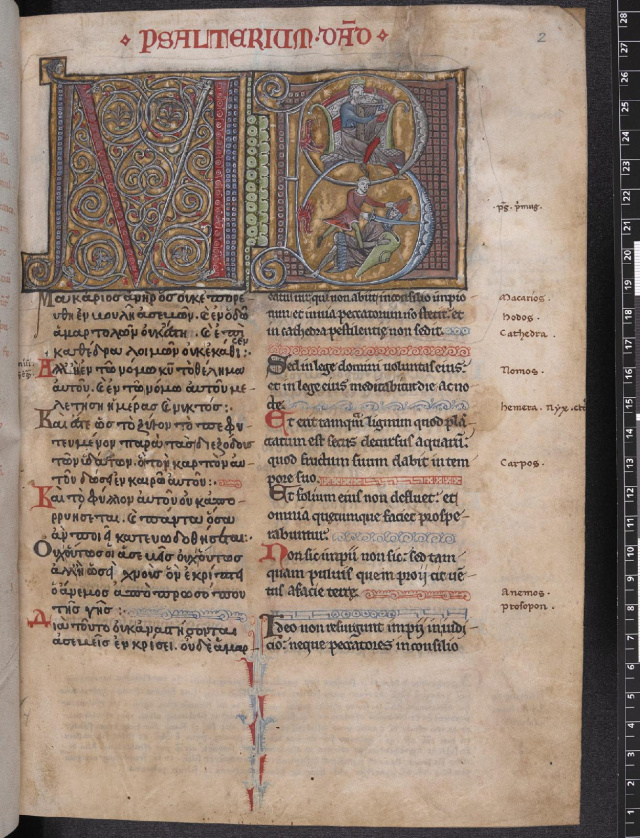 PSALTERIUM · DAD
2
pS. primus.
Μακάριος ἀνηρ ὃς οὐκ ἐπορε
ύθη ἐν βουλὴ ἀσεβῶν. Κ ἐν ὁδῶ
ἁμαρτολῶν οὐκ ἔστη. Κ ἐπὶ
καθέδρα λοιμῶν οὐκ ἐκαθι
σεν
Ἀλλ' ἠ ἐν τῶ νόμω κυ τὸ θέλημα
αὐτοῦ. Κ ἐν τῶ νόμω αὐτοῦ με
λετήση ἡμέρας Κ νυκτός:
Καὶ ἔστε ὡς τὸ ξύλον τὸ πεφυ
τευμένον παρὰ τὰς διεξόδους
τῶν ὑδάτων. ὃ τὸν καρπὸν αυ
τοῦ δώσει ἐν καιρῶ αὐτοῦ:
Καὶ τὸ φύλλον αὐτοῦ οὐκ ἀπο
ρρυήσεται. Κ πάντα ὅσα
ἂν ποιῆ κατευωδοθήσεται:
Οὐχ οὕτως οἱ ἀσεβεῖς οὐχ οὕτως
ἀλλ' ἢ ὡσεὶ χνοῦς ὃν ἐκρίπτει
ὁ ἄνεμος ἀπὸ προσώπου
τῆς γῆς:
Διὰ τοῦτο οὐκ ἀναστήσονται
ἀσεβεῖς ἐν κρίσει. οὐδὲ ἁμαρ
eatus uir qui non abiit in consilio impio
rum et in uia peccatorum no stetit. et
in cathedra pestilentie non sedit.
Sed in lege domini uoluntas eius.
et in lege eius meditabitur die ac no
cte.
Et erit tamquam lignum quod pla
tatum est secus decursus aquarum.
quod fructum suum dabit in tem
pore suo.
Et folium eius non defluet. et
omnia quecumque faciet prospe
rabuntur.
Non sic impii non sic. sed tam
quam puluis quem proicit uen
tus a facie terre.
Ideo non resurgunt impii in iudi
cio. neque peccatores in consilio
Macarios.
hodos.
Cathedra.
Nomos.
hemera. Nyx.
Carpos.
Anemos.
prosopon.
28
27
26
25
24
23
22
21
20
19
18
17
16
15
14
13
12
11
10
9
8
7
6
5
4
3
2
1